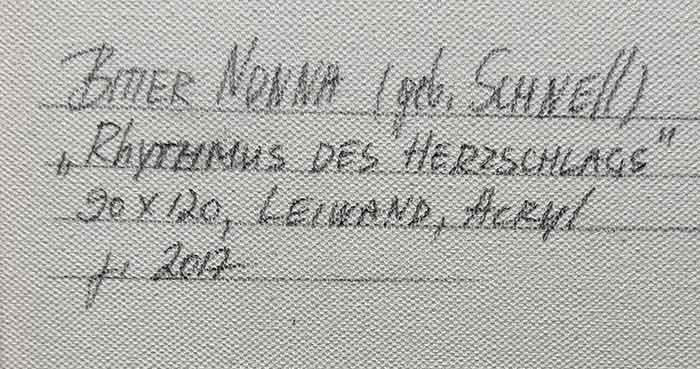 BITTER NONNA (geb. SCHNEll)
„RhYTHMUS DES HERZSCHLAGS“
90 x 120, LEIWAND, ACRYl
2017